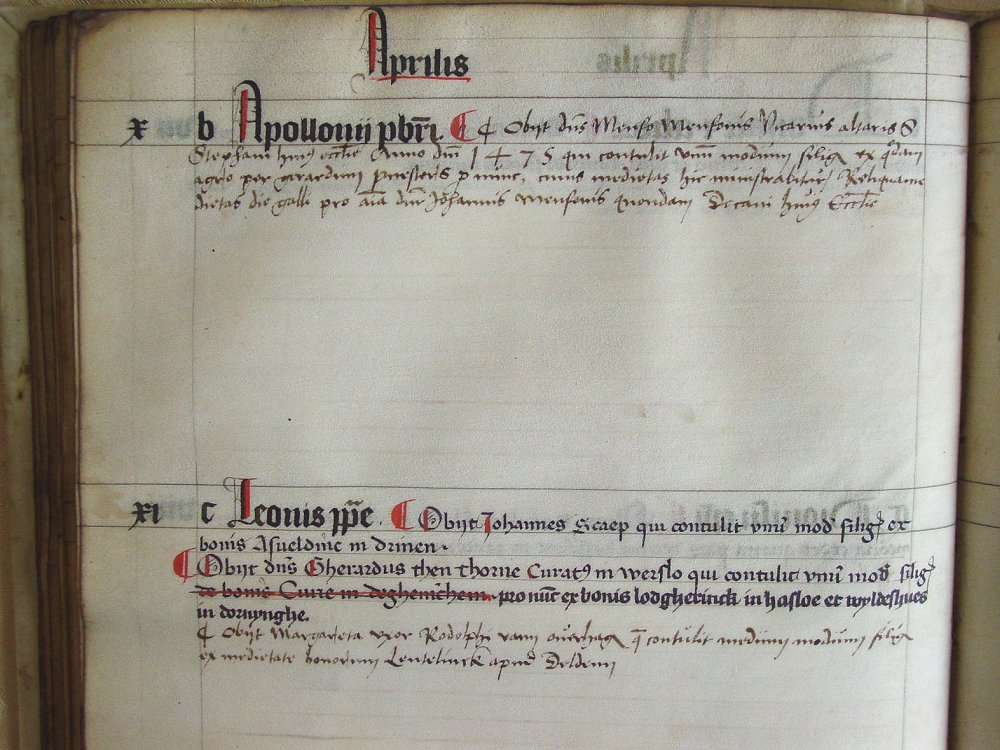 Aprilis
x b Apollonij pbr̄i. ¶ ¶ Obijt dn̄s Menso Mensonis Vicarius altaris S
Stephani huiꝰ eccl̄ie Anno dn̄i 1475 qui contulit vnū modium silig ex qdam
agro per gerardum p nunc, cuius medietas hic ministrabitur / Reliqua me
dietas die galli pro aīa dn̄i Johannis Mensonis quondam Decani huiꝰ Eccl̄ie
xi c Leonis pp̄e. ¶ Obijt Johannes Scaep qui contulit vnū mod̄ silig ex
bonis Asueldinc in drinen.
¶ Obijt dn̄s Gherardus then thorne Curatꝰ in werslo qui contulit vnū mod̄ silig
de bonis Cure in deghenichem. pro nūc ex bonis lodgherinck in hasloe et wyldeshues
in dornynghe.
¶ Obijt Margareta vxor Rodolphi vann ouerhag q̄ contulit medium modium silig
ex medietate bonorum Lentelinck apud Deldenn